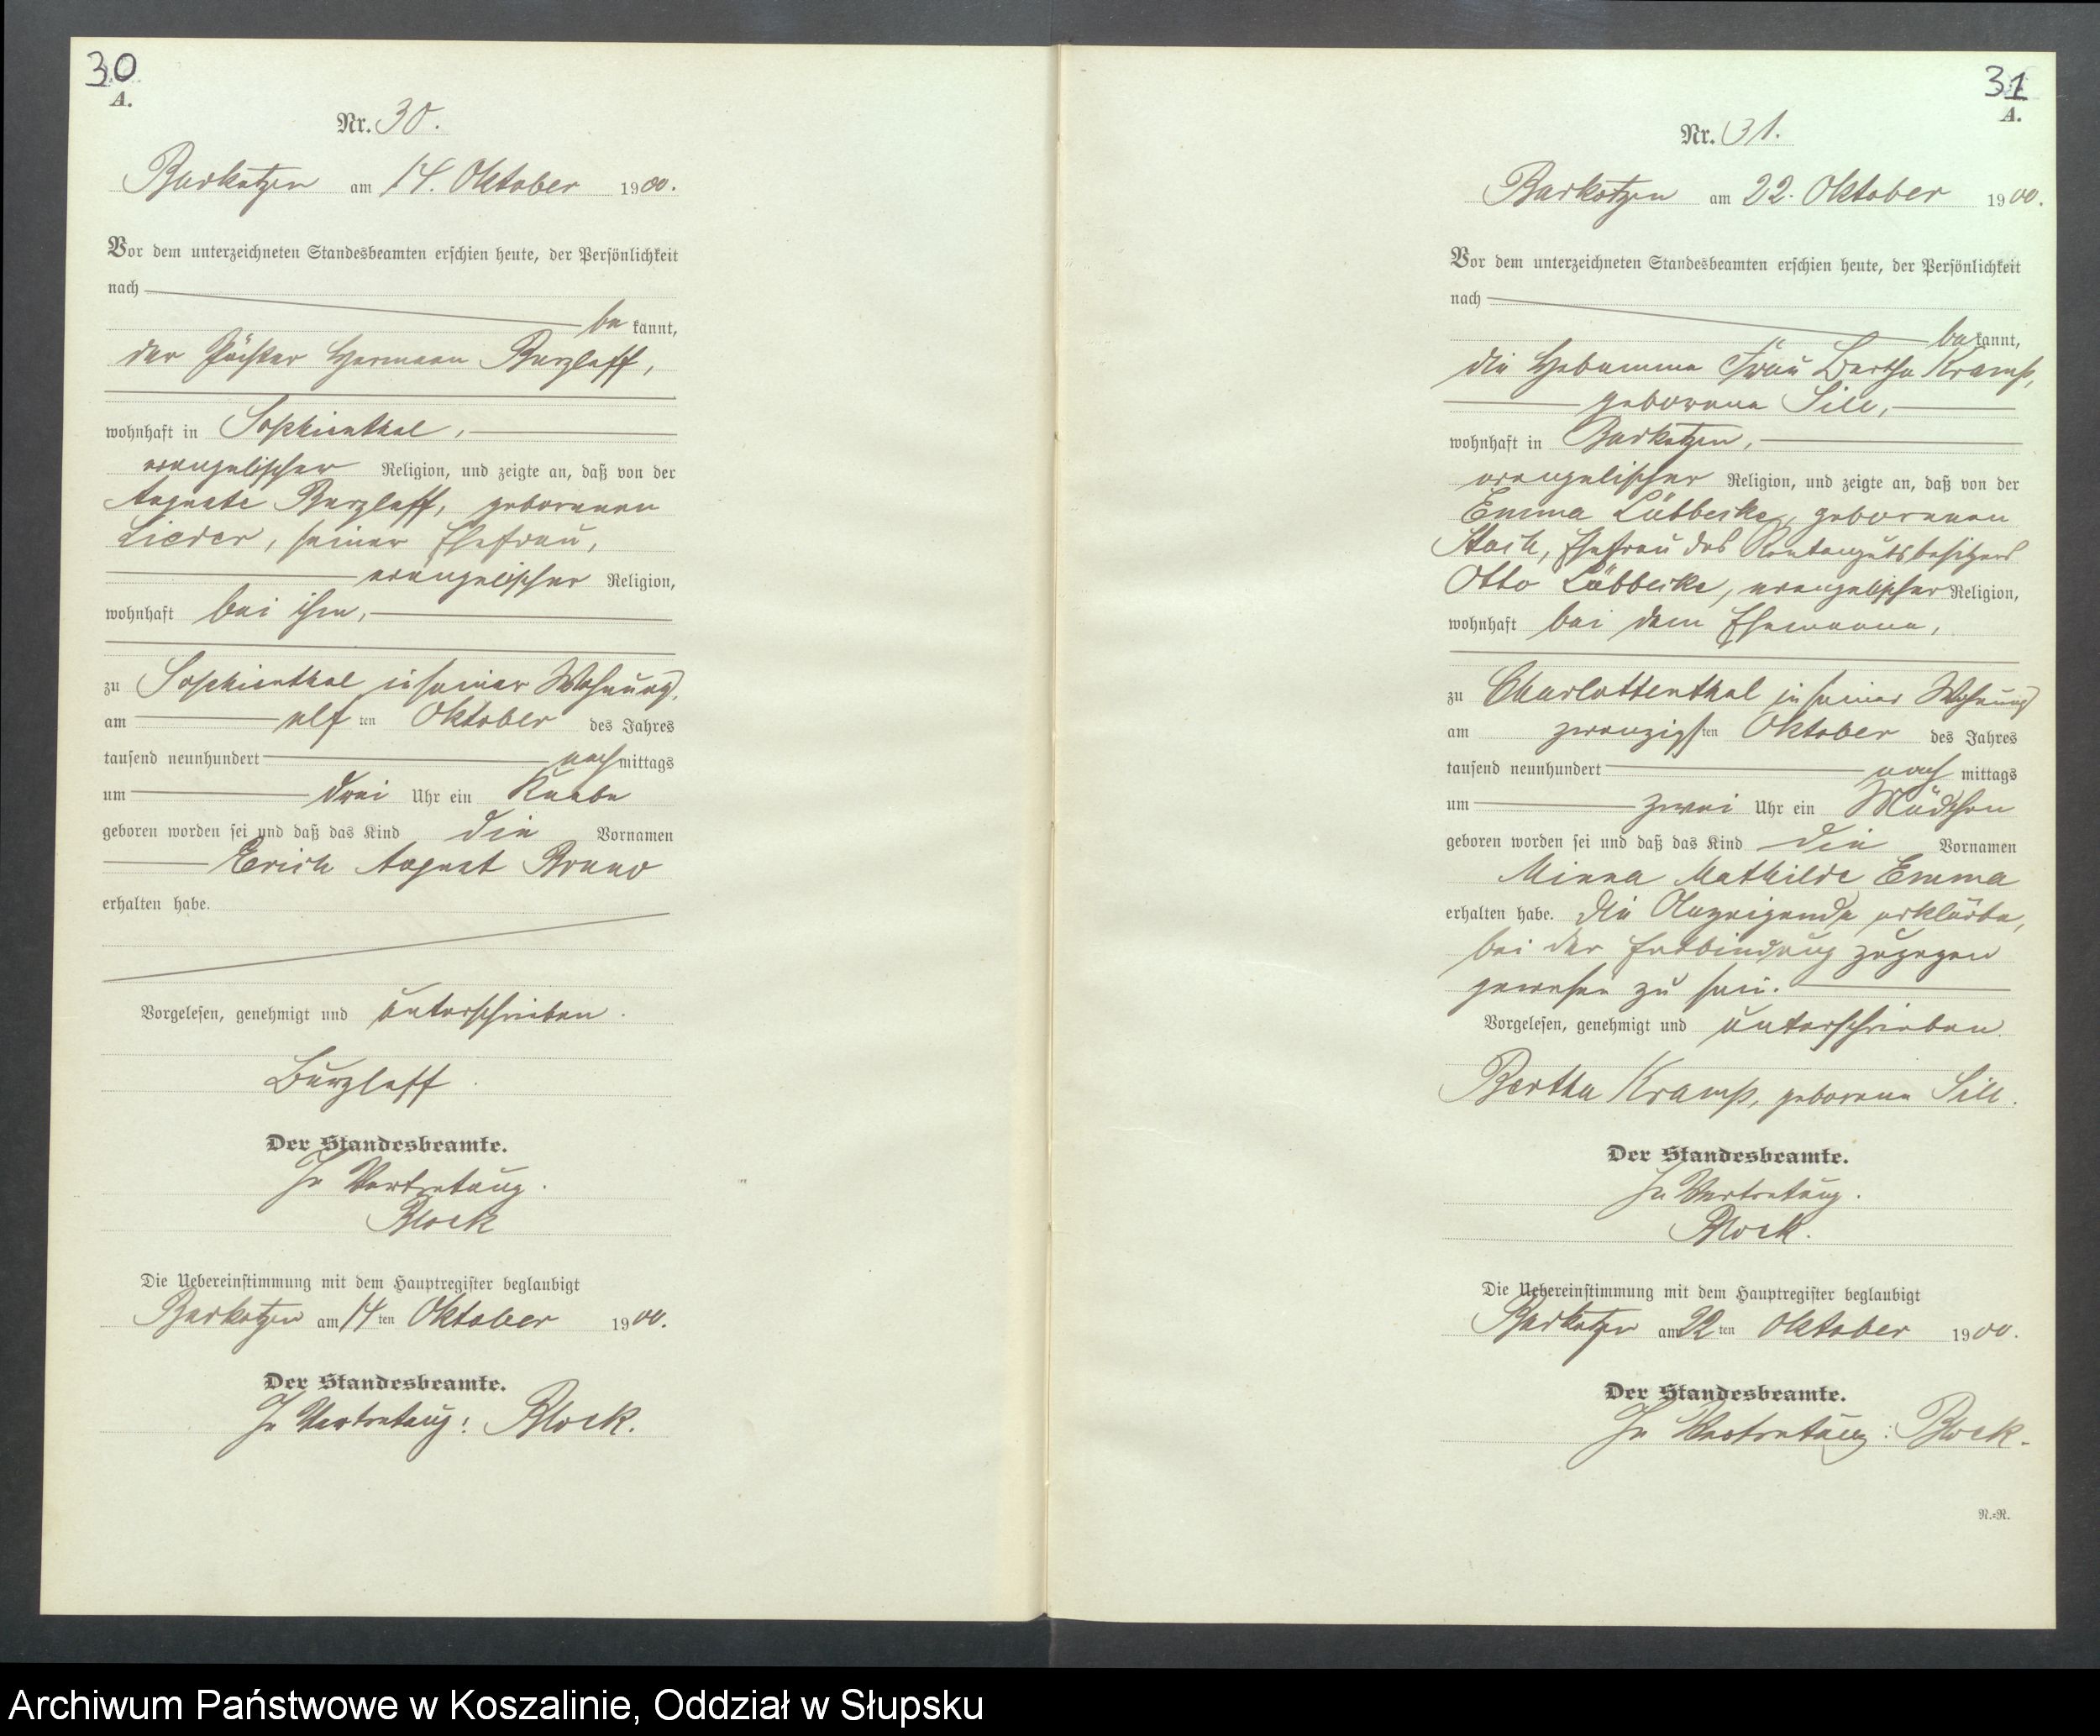 30
A.
Nr. 30.
Barkotzen am 14. Oktober 1900.
Vor dem unterzeichneten Standesbeamten erschien heute, der Persönlichkeit
nach
be kannt,
der Hermann Burzlaff,
wohnhaft in Sophienthal,
evangelischer Religion, und zeigte an, daß von der
Auguste Burzlaff, geborenen
seiner Ehefrau,
evangelischer Religion,
wohnhaft bei ihm,
zu Sophienthal in seiner Wohnung,
am elf ten Oktober des Jahres
tausend neunhundert nach mittags
um drei Uhr ein Knabe
geboren worden sei und daß das Kind die Vornamen
Erich August Bruno
erhalten habe.
Vorgelesen, genehmigt und unterschrieben.
Burzlaff
Der Standesbeamte.
In Vertretung.
Block
Die Uebereinstimmung mit dem Hauptregister beglaubigt
Barkotzen am 14 ten Oktober 1900.
Der Standesbeamte.
In Vertretung: Block.
31
A.
Nr. 31.
Barkotzen am 22. Oktober 1900.
Vor dem unterzeichneten Standesbeamten erschien heute, der Persönlichkeit
nach
be kannt,
die Hebamme Frau Bertha Kramp,
geborene Sill,
wohnhaft in Barkotzen,
evangelischer Religion, und zeigte an, daß von der
Emma Lübbecke, geborenen
Ehefrau des Rentengutsbesitzers
Otto Lübbecke, evangelischer Religion,
wohnhaft bei dem Ehemanne,
zu Charlottenthal in seiner Wohnung
am zwanzigsten Oktober des Jahres
tausend neunhundert nach mittags
um zwei Uhr ein Mädchen
geboren worden sei und daß das Kind die Vornamen
Minna Mathilde Emma
erhalten habe. Die Anzeigende erklärte,
bei der Entbindung zugegen
gewesen zu sein.
Vorgelesen, genehmigt und unterschrieben.
Bertha Kramp, geborene Sill.
Der Standesbeamte.
In Vertretung.
Block.
Die Uebereinstimmung mit dem Hauptregister beglaubigt
Barkotzen am 22 ten Oktober 1900.
Der Standesbeamte.
In Vertretung: Block.
N.=R.
Archiwum Państwowe w Koszalinie, Oddział w Słupsku